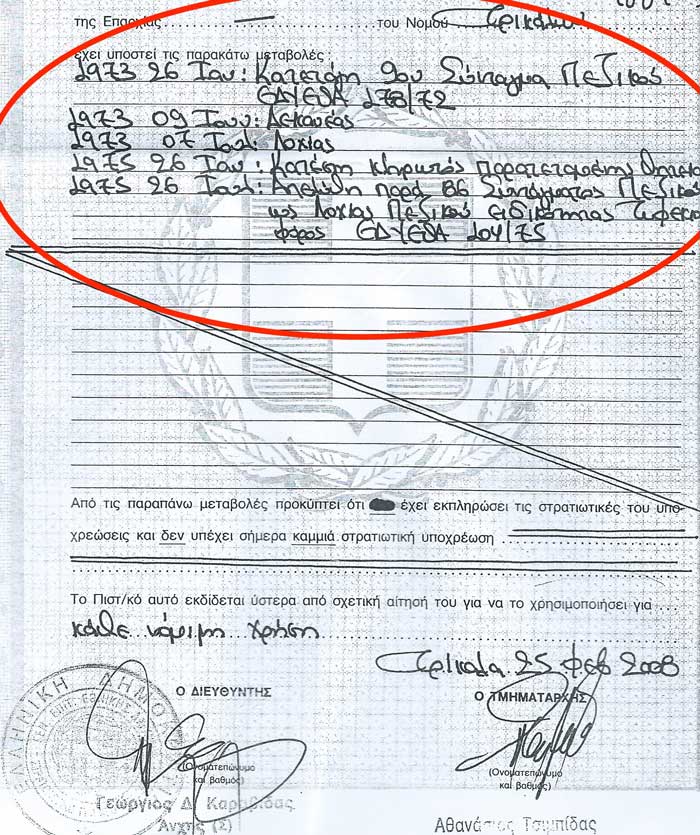 της Επαρχίας — του Νομού Τρικάλων
έχει υποστεί τις παρακάτω μεταβολές :
1973 26 Ιαν: Κατετάγη 9ον Σύνταγμα Πεζικού
ΕΔΥΕΘΑ 278/72
1973 09 Ιουν: Δεκανέας
1973 07 Ιουλ: Λοχίας
1975 26 Ιαν: Κατέστη κληρωτός παρατεταμένης
1975 26 Ιουλ: Απελύθη παρά 86 Συντάγματος Πεζικού
ως Λοχίας Πεζικού ειδικότητας τυφεκιο
φόρος ΕΔΥΕΘΑ 204/75
Από τις παραπάνω μεταβολές προκύπτει ότι έχει εκπληρώσει τις στρατιωτικές του υπο-
χρεώσεις και δεν υπέχει σήμερα καμμιά στρατιωτική υποχρέωση
Το Πιστ/κό αυτό εκδίδεται ύστερα από σχετική αίτησή του για να το χρησιμοποιήσει για
κάθε νόμιμη χρήση
Τρίκαλα 25 Φεβ 2008
Ο ΔΙΕΥΘΥΝΤΗΣ
Ο ΤΜΗΜΑΤΑΡΧΗΣ
ΕΛΛΗΝΙΚΗ ΔΗΜΟ
(Ονοματεπώνυμο
και βαθμός)
(Ονοματεπώνυμο
και βαθμός)
Γεώργιος Δ. Καραβίδας
Ανχης (Σ)
Αθανάσιος Τσιμπίδας